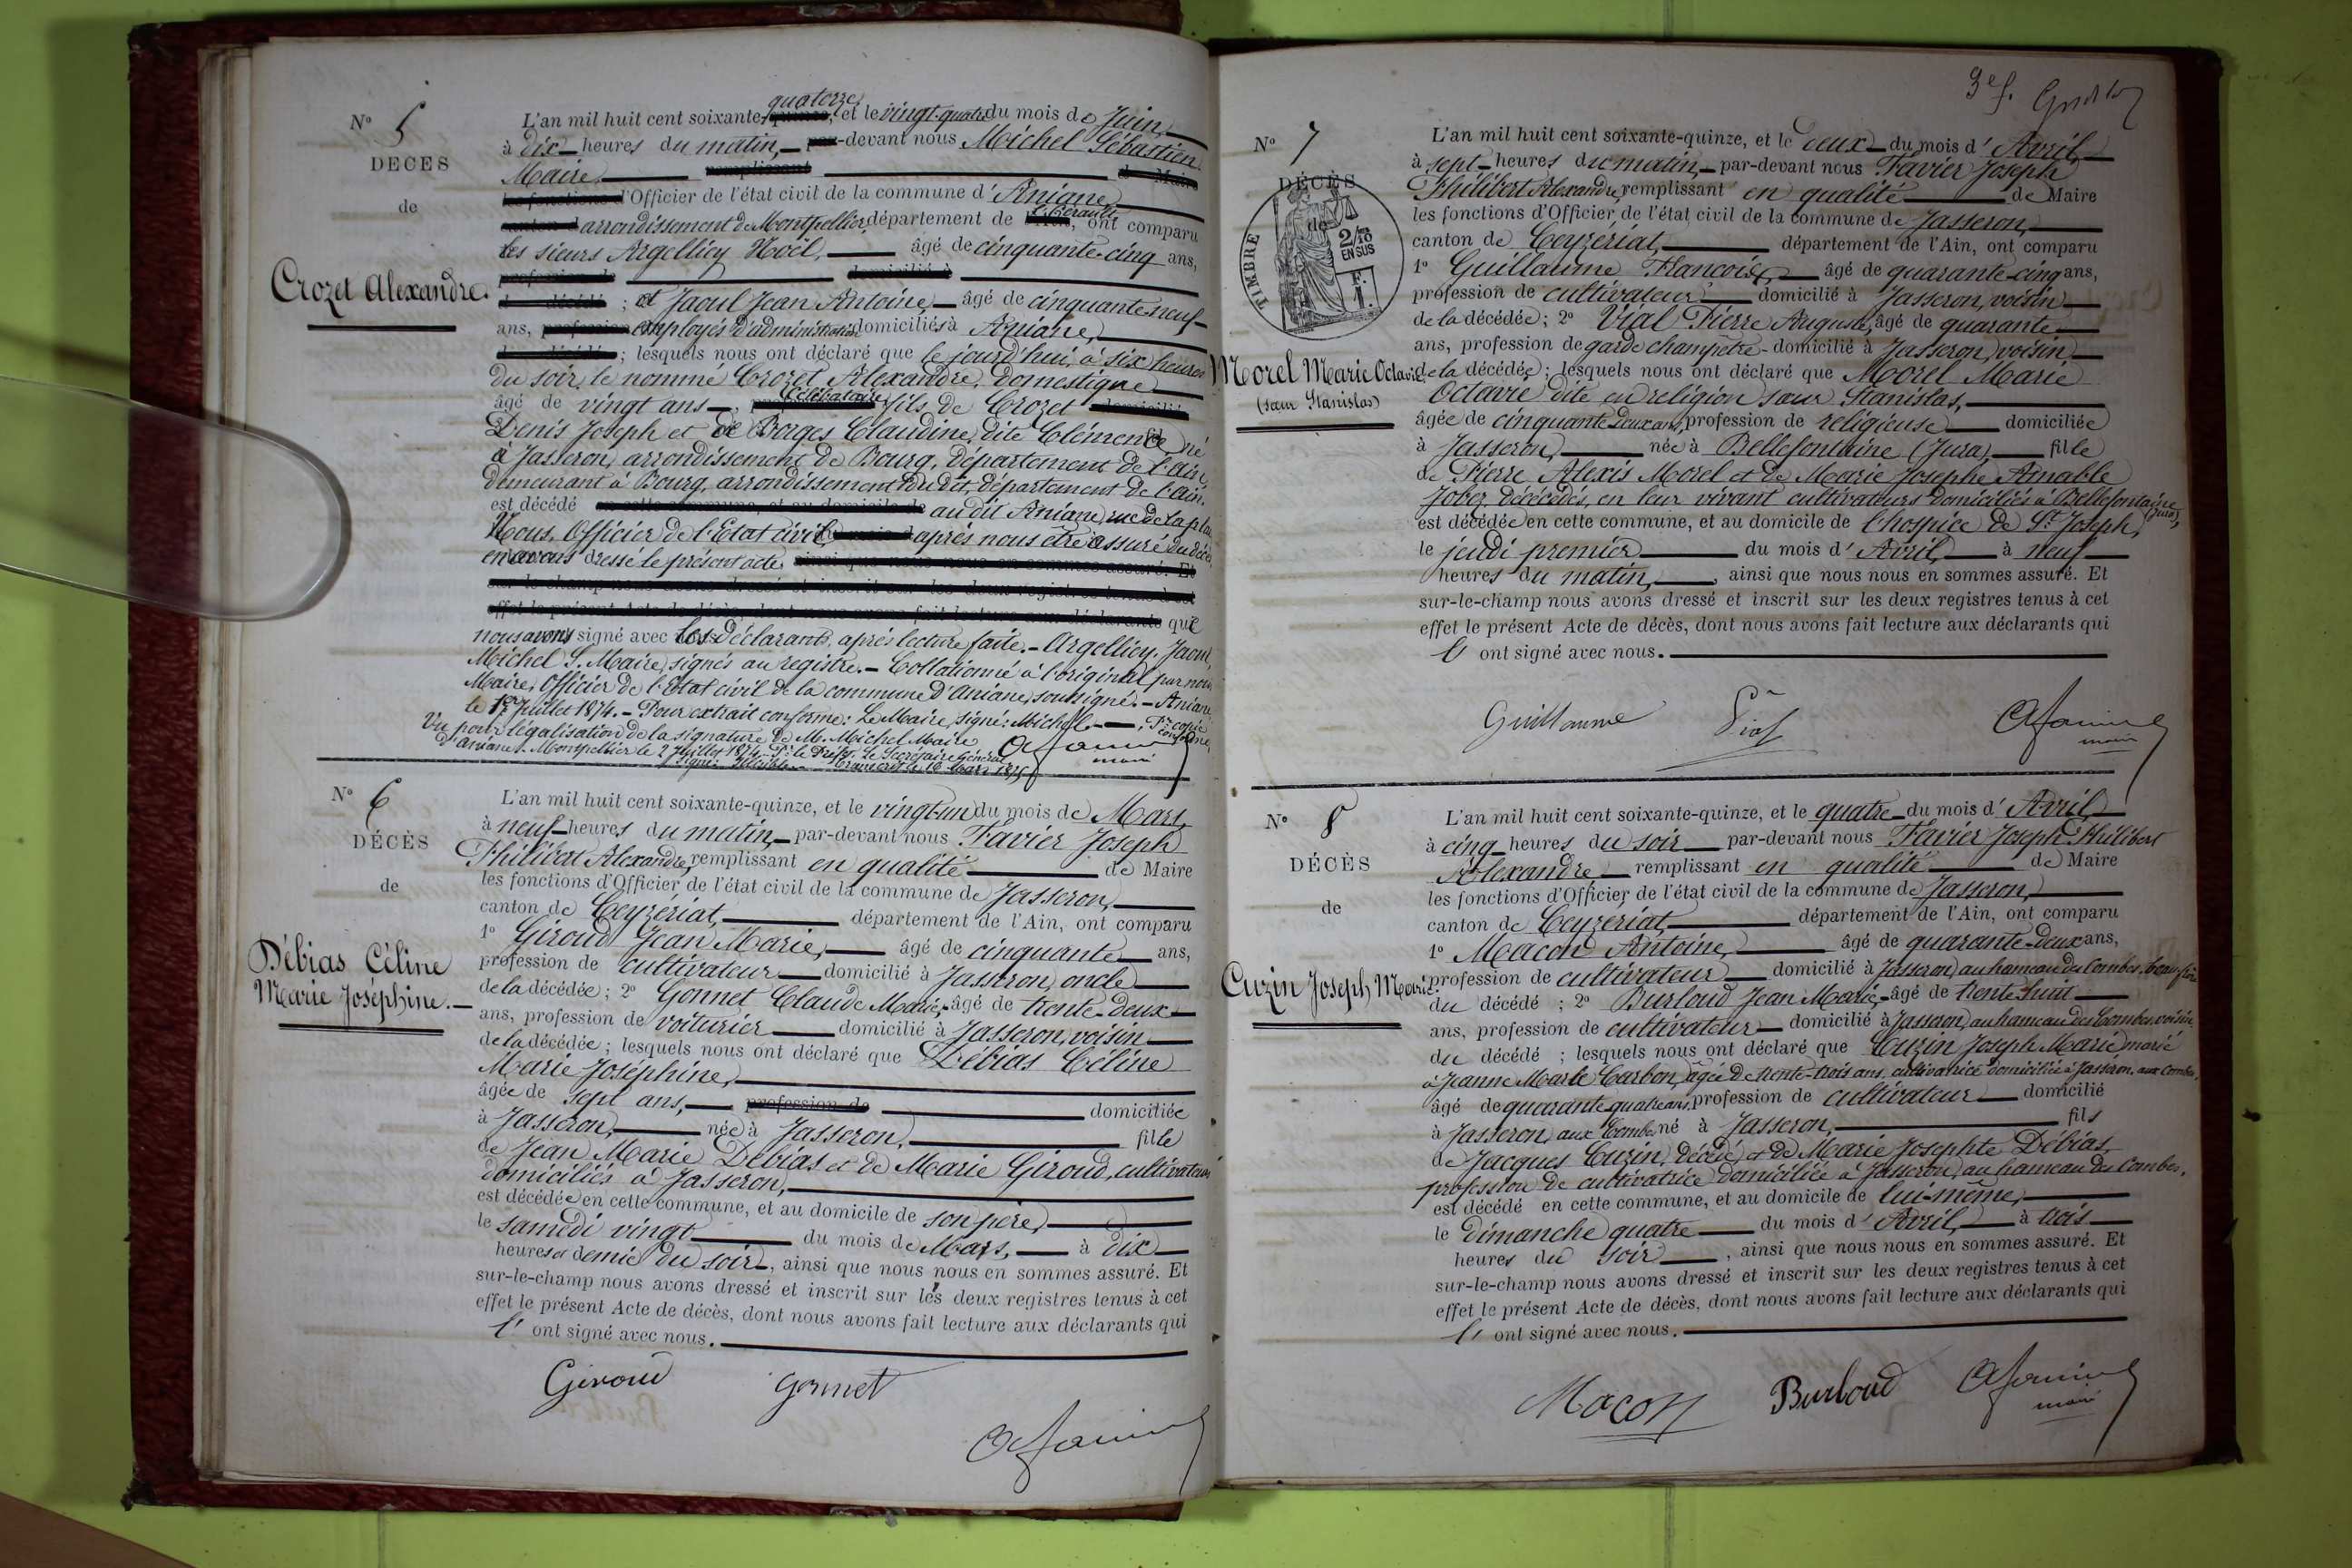 N° 5
DECES
de
Crozet Alexandre.
L'an mil huit cent soixante quatorze, et le vingt-quatre du mois de Juin,
à dix heures du matin, par-devant nous Michel Sébastien
Maire remplissant de Maire
les fonctions d'Officier de l'état civil de la commune d'Aniane,
canton d arrondissement de Montpellier, département de l'Hérault, ont comparu
les sieurs Argelliey Noël, âgé de cinquante-cinq ans,
profession de domicilié à
du décédé ; et Jaoul Jean Antoine, âgé de cinquante-neuf
ans, profession employés d'administration domiciliés à Aniane,
du décédé ; lesquels nous ont déclaré que le jourd'hui, à six heures
du soir, le nommé Crozet Alexandre, domestique
âgé de vingt ans, célibataire, fils de Crozet domicilié
Denis Joseph et de Borges Claudine, dite Clémence, né
à Jasseron, arrondissement de Bourg, département de l'Ain,
demeurant à Bourg, arrondissement du dit, département de l'ain.
est décédé en cette commune, et au domicile de au dit Aniane, rue de la
Nous, Officier de l'Etat civil, après nous être assuré du décès,
en avons dressé le présent acte. ainsi que nous nous en sommes assuré. Et
sur-le-champ nous avons dressé et inscrit sur les deux registres tenus à cet
effet le présent Acte de décès, dont nous avons fait lecture aux déclarants que
nous avons signé avec les déclarants, après lecture faite. - Argelliey, Jaoul,
Michel S. Maire, signés au registre. - Collationné à l'original par nous
Maire, Officier de l'Etat civil de la commune d'Aniane, soussigné. - Aniane
le 1er Juillet 1874. - Pour extrait conforme: Le Maire, signé: Michel. Pr copie
conforme,
Vu pour légalisation de la signature de M. Michel Maire
d'Aniane. Montpellier le 2 Juillet 1874. Pr le Préfet, Le Secrétaire Général
signé: Illisible. Transcrit le 16 Mars 1875
maire
N° 6
DÉCÈS
de
Débias Céline
Marie Joséphine.
L'an mil huit cent soixante-quinze, et le vingt-un du mois de Mars,
à neuf heures du matin, par-devant nous Favier Joseph
Philibert Alexandre, remplissant en qualité de Maire
les fonctions d'Officier de l'état civil de la commune de Jasseron,
canton de Ceyzériat, département de l'Ain, ont comparu
1° Giroud Jean Marie, âgé de cinquante ans,
profession de cultivateur domicilié à Jasseron, oncle
de la décédée; 2° Gonnet Claude Marie, âgé de trente-deux
ans, profession de voiturier domicilié à Jasseron, voisin
de la décédée; lesquels nous ont déclaré que Débias Céline
Marie Joséphine,
âgée de sept ans, profession de domiciliée
à Jasseron, née à Jasseron, fille
de Jean Marie Débias et de Marie Giroud, cultivateurs
domiciliés à Jasseron,
est décédée en cette commune, et au domicile de son père,
le samedi vingt du mois de Mars, à dix
heures et demie du soir, ainsi que nous nous en sommes assuré. Et
sur-le-champ nous avons dressé et inscrit sur les deux registres tenus à cet
effet le présent Acte de décès, dont nous avons fait lecture aux déclarants qui
l' ont signé avec nous.
Giroud gonnet
3e f.
N° 7
DÉCÈS
de
TIMBRE
2/10
EN SUS
F.
1.
Morel Marie Octavie
(sœur Stanislas)
L'an mil huit cent soixante-quinze, et le deux du mois d'Avril
à sept heures du matin, par-devant nous Favier Joseph
Philibert Alexandre, remplissant en qualité de Maire
les fonctions d'Officier de l'état civil de la commune de Jasseron,
canton de Ceyzériat, département de l'Ain, ont comparu
1° Guillaume François, âgé de quarante-cinq ans,
profession de cultivateur domicilié à Jasseron, voisin
de la décédée; 2° Vial Pierre Auguste, âgé de quarante
ans, profession de garde champêtre domicilié à Jasseron, voisin
de la décédée; lesquels nous ont déclaré que Morel Marie
Octavie dite en religion sœur Stanislas,
âgée de cinquante-deux ans, profession de religieuse domiciliée
à Jasseron, née à Bellefontaine (Jura), fille
de Pierre Alexis Morel et de Marie Josephe Amable
Jobez, décécédés, en leur vivant cultivateurs domiciliés à Bellefontaine (Jura),
est décédée en cette commune, et au domicile de l'hospice de St Joseph,
le jeudi premier du mois d'Avril, à neuf
heures du matin, ainsi que nous nous en sommes assuré. Et
sur-le-champ nous avons dressé et inscrit sur les deux registres tenus à cet
effet le présent Acte de décès, dont nous avons fait lecture aux déclarants qui
l' ont signé avec nous.
Guillaume Vial
maire
N° 8
DÉCÈS
de
Cuzin Joseph Marie
L'an mil huit cent soixante-quinze, et le quatre du mois d'Avril
à cinq heures du soir par-devant nous Favier Joseph Philibert
Alexandre remplissant en qualité de Maire
les fonctions d'Officier de l'état civil de la commune de Jasseron,
canton de Ceyzériat, département de l'Ain, ont comparu
1° Macon Antoine, âgé de quarante-deux ans,
profession de cultivateur domicilié à Jasseron, au hameau des Combes, beau-frère
du décédé ; 2° Burloud Jean Marie, âgé de trente-huit
ans, profession de cultivateur domicilié à Jasseron, au hameau des Combes, voisin
du décédé ; lesquels nous ont déclaré que Cuzin Joseph Marie marié
à Jeanne Marie Carbon, âgée de trente-trois ans, cultivatrice domiciliée à Jasseron, aux Combes,
âgé de quarante-quatre ans, profession de cultivateur domicilié
à Jasseron, aux Combes né à Jasseron, fils
de Jacques Cuzin, décédé et de Marie Josephte Débias,
profession de cultivatrice domiciliée à Jasseron, au hameau des Combes,
est décédé en cette commune, et au domicile de lui-même,
le dimanche quatre du mois d'Avril, à trois
heures du soir, ainsi que nous nous en sommes assuré. Et
sur-le-champ nous avons dressé et inscrit sur les deux registres tenus à cet
effet le présent Acte de décès, dont nous avons fait lecture aux déclarants qui
l' ont signé avec nous.
Macon Burloud
maire